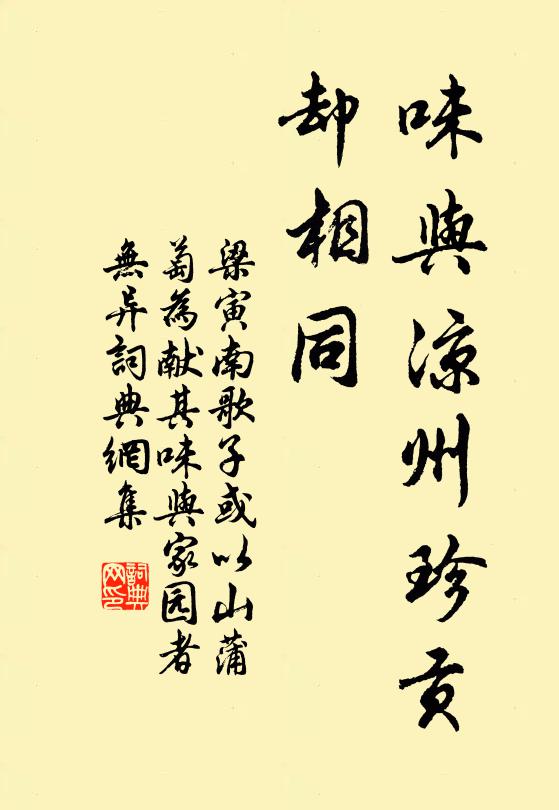 味與涼州珍贡
却相同
梁寅南歌子或以山蒲
萄為献其味與家园者
無异詞典網集
詞典
网印